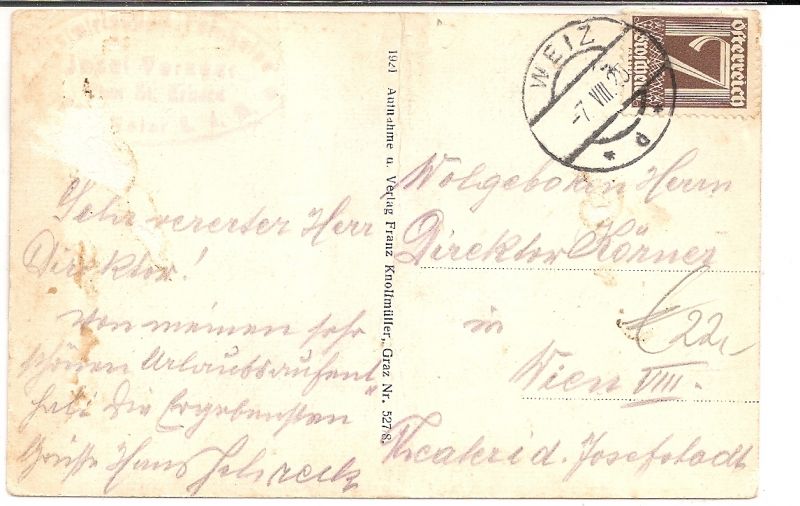 Josef
Sehr vererter Herr
Direktor!
Von meinen sehr
schönen Urlaubsaufent
halt die Ergebensten
Grüsse Hans
1921 Aufnahme u. Verlag Franz Knollmüller, Graz Nr. 5278.
WEIZ
-7. VIII. 
* d *
7
Groschen
Österreich
Wolgeboren Herrn
Direktor Körner
in
Wien VIII.
Theater i d. Josefstadt
22,-